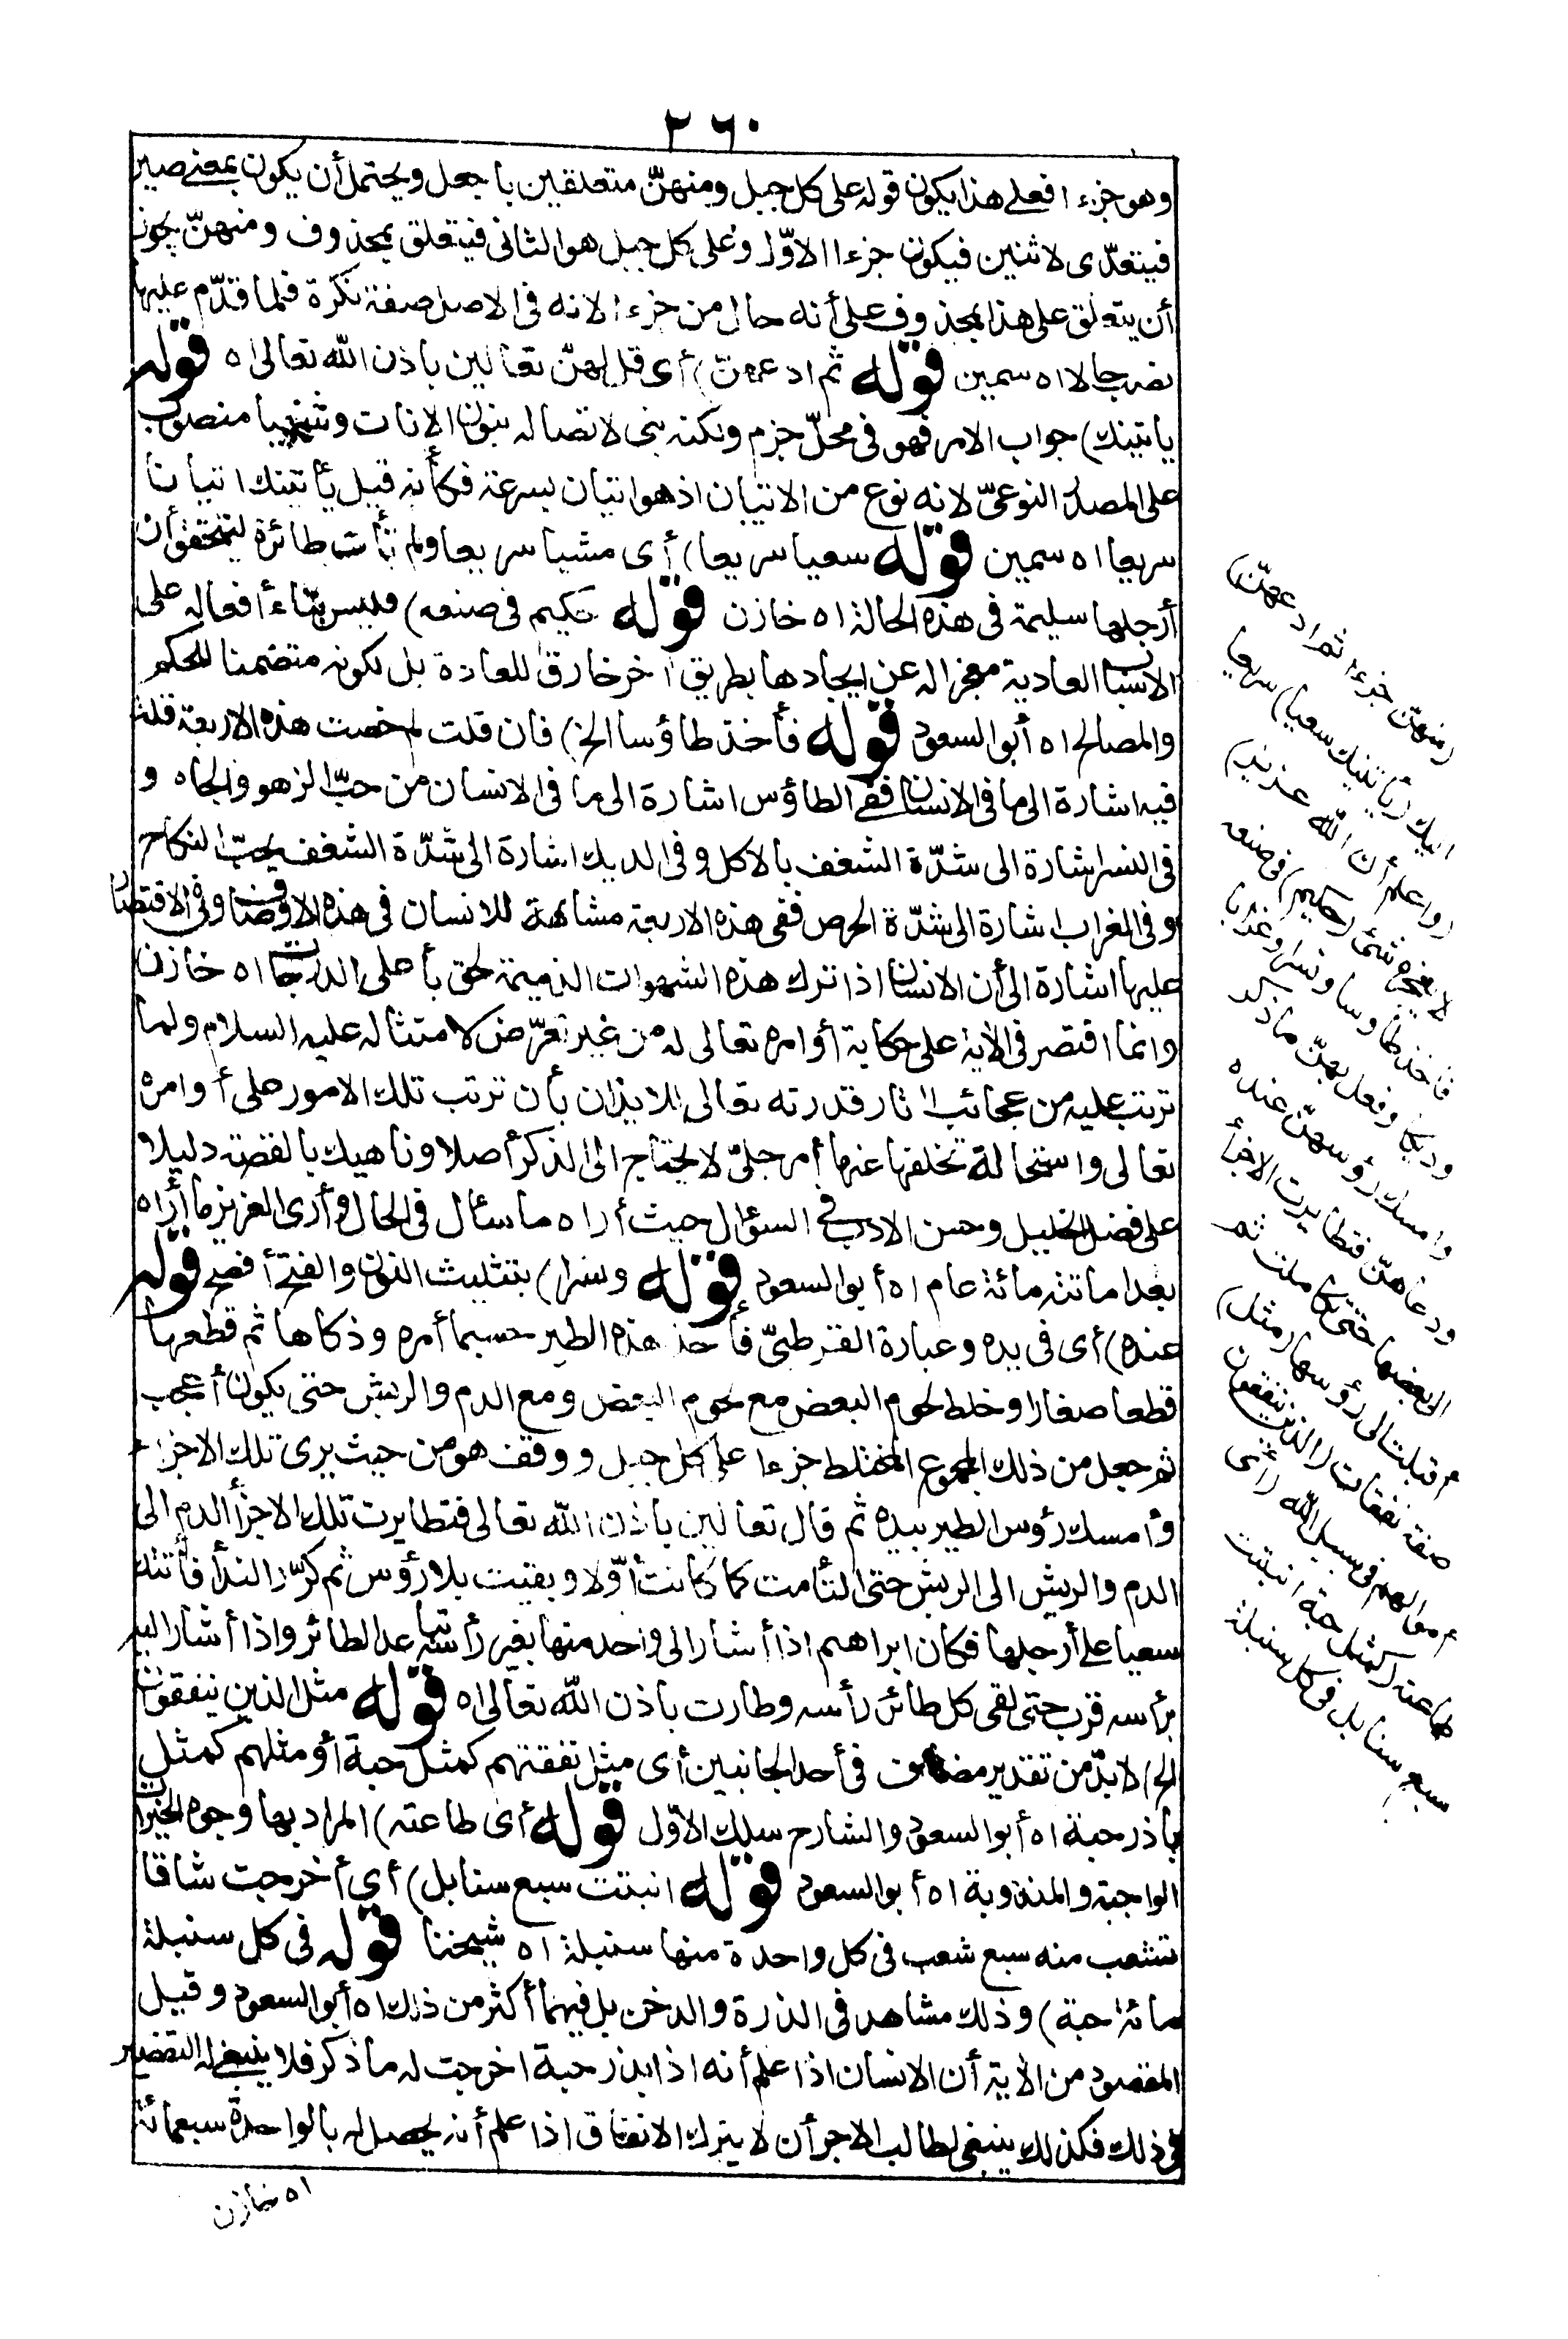 ٢٦٠
وهو جزء ا فعلى هذا يكون قوله على كل جبل ومنهنّ متعلقين باجعل ويحتمل أن يكون بمعنى صير
فيتعدّى لاثنين فيكون جزءا الاوّل وعلى كل جبل هو الثانى فيتعلق بمحذوف ومنهنّ يجوز
أن يتعلق على هذا بمحذوف على أنه حال من جزء ا لانه فى الاصل صفة نكرة فلما قدّم عليها
نصب حالا اه سمين قوله ثم ادعهنّ) أى قل لهنّ تعالين باذن الله تعالى اه قوله
يأتينك) جواب الامر فهو فى محلّ جزم ولكنه بنى لاتصاله بنون الاناث وسعيا منصوب
على المصدر النوعىّ لانه نوع من الاتيان اذ هو اتيان بسرعة فكأنه قيل يأتينك اتيانا
سريعا اه سمين قوله سعيا سريعا) أى مشيا سريعا ولم تأت طائرة ليتحقق أن
أرجلها سليمة فى هذه الحالة اه خازن قوله حكيم فى صنعه) فليس بناء أفعاله على
الاسباب العادية معجزا له عن ايجادها بطريق آخر خارق للعادة بل لكونه متضمنا للحكم
والمصالح اه أبو السعود قوله فأخذ طاؤسا الخ) فان قلت لم خصت هذه الاربعة قلت
فيه اشارة الى ما فى الانسان ففى الطاؤس اشارة الى ما فى الانسان من حبّ الزهو والجاه و
فى النسر اشارة الى شدّة الشغف بالاكل وفى الديك اشارة الى شدّة الشغف بحبّ النكاح
وفى الغراب اشارة الى شدّة الحرص ففى هذه الاربعة مشابهة للانسان فى هذه الاوصاف وفى الاقتصار
عليها اشارة الى أن الانسان اذا ترك هذه الشهوات الذميمة لحق بأعلى الدرجات اه خازن
وانما اقتصر فى الآية على حكاية أوامره تعالى له من غير تعرّض لامتثاله عليه السلام ولما
ترتب عليه من عجائب اثار قدرته تعالى للايذان بأن ترتب تلك الامور على أوامره
تعالى واستحالة تخلفها عنها أمر جلىّ لا يحتاج الى الذكر أصلا وناهيك بالقصة دليلا
على فضل الخليل وحسن الادب فى السؤال حيث أراه ما سأل فى الحال وأرى العزيز ما أراه
بعد اماتته مائة عام اه أبو السعود قوله ونسرا) بتثليث النون والفتح أفصح قوله
عنده) أى فى يده وعبارة القرطبىّ فأخذ هذه الطير حسبما أمره وذكاها ثم قطعها
قطعا صغارا وخلط لحوم البعض مع لحوم البعض ومع الدم والريش حتى يكون أعجب
ثم جعل من ذلك المجموع المختلط جزءا على كل جبل ووقف هو من حيث يرى تلك الاجزاء
وأمسك رؤس الطير بيده ثم قال تعالين باذن الله تعالى فتطايرت تلك الاجزأ الدم الى
الدم والريش الى الريش حتى التأمت كما كانت أوّلا وبقيت بلا رؤس ثم كرّر الندأ فأتته
سعيا على أرجلها فكان ابراهيم اذا أشار الى واحد منها بغير رأسه تباعد الطائر واذا أشار اليه
برأسه قرب حتى لقى كل طائر رأسه وطارت باذن الله تعالى اه قوله مثل الذين ينفقون
الخ) لا بدّ من تقدير مضاف فى أحد الجانبين أى مثل نفقتهم كمثل حبة أو مثلهم كمثل
باذر حبة اه أبو السعود والشارح سلك الاوّل قوله أى طاعته) المراد بها وجوه الخيرات
الواجبة والمندوبة اه أبو السعود قوله انبتت سبع سنابل) أى أخرجت ساقا
تشعب منه سبع شعب فى كل واحدة منها سنبلة اه شيخنا قوله فى كل سنبلة
مائة حبة) وذلك مشاهد فى الذرة والدخن بل فيهما أكثر من ذلك اه أبو السعود وقيل
المقصود من الآية أن الانسان اذا علم أنه اذا بذر حبة اخرجت له ما ذكر فلا ينبغى له التقصير
فى ذلك فكذلك ينبغى لطالب الاجر أن لا يترك الانفاق اذا علم أنه يحصل له بالواحدة سبعمائة
اه خازن
(منهنّ جزءا ثم ادعهنّ)
اليك (يأتينك سعيا) سريعا
(واعلم أن الله عزيز)
لا يعجزه شئ (حكيم) فى صنعه
فأخذ طاوسا ونسرا وغرابا
وديكا وفعل بهنّ ما ذكر
وامسك رؤسهنّ عنده
ودعاهنّ فتطايرت الاجزأ
الى بعضها حتى تكاملت ثم
اقبلت الى رؤسها (مثل)
صفة نفقات (الذين ينفقون
اموالهم فى سبيل الله) أى
طاعته (كمثل حبة انبتت
سبع سنابل فى كل سنبلة